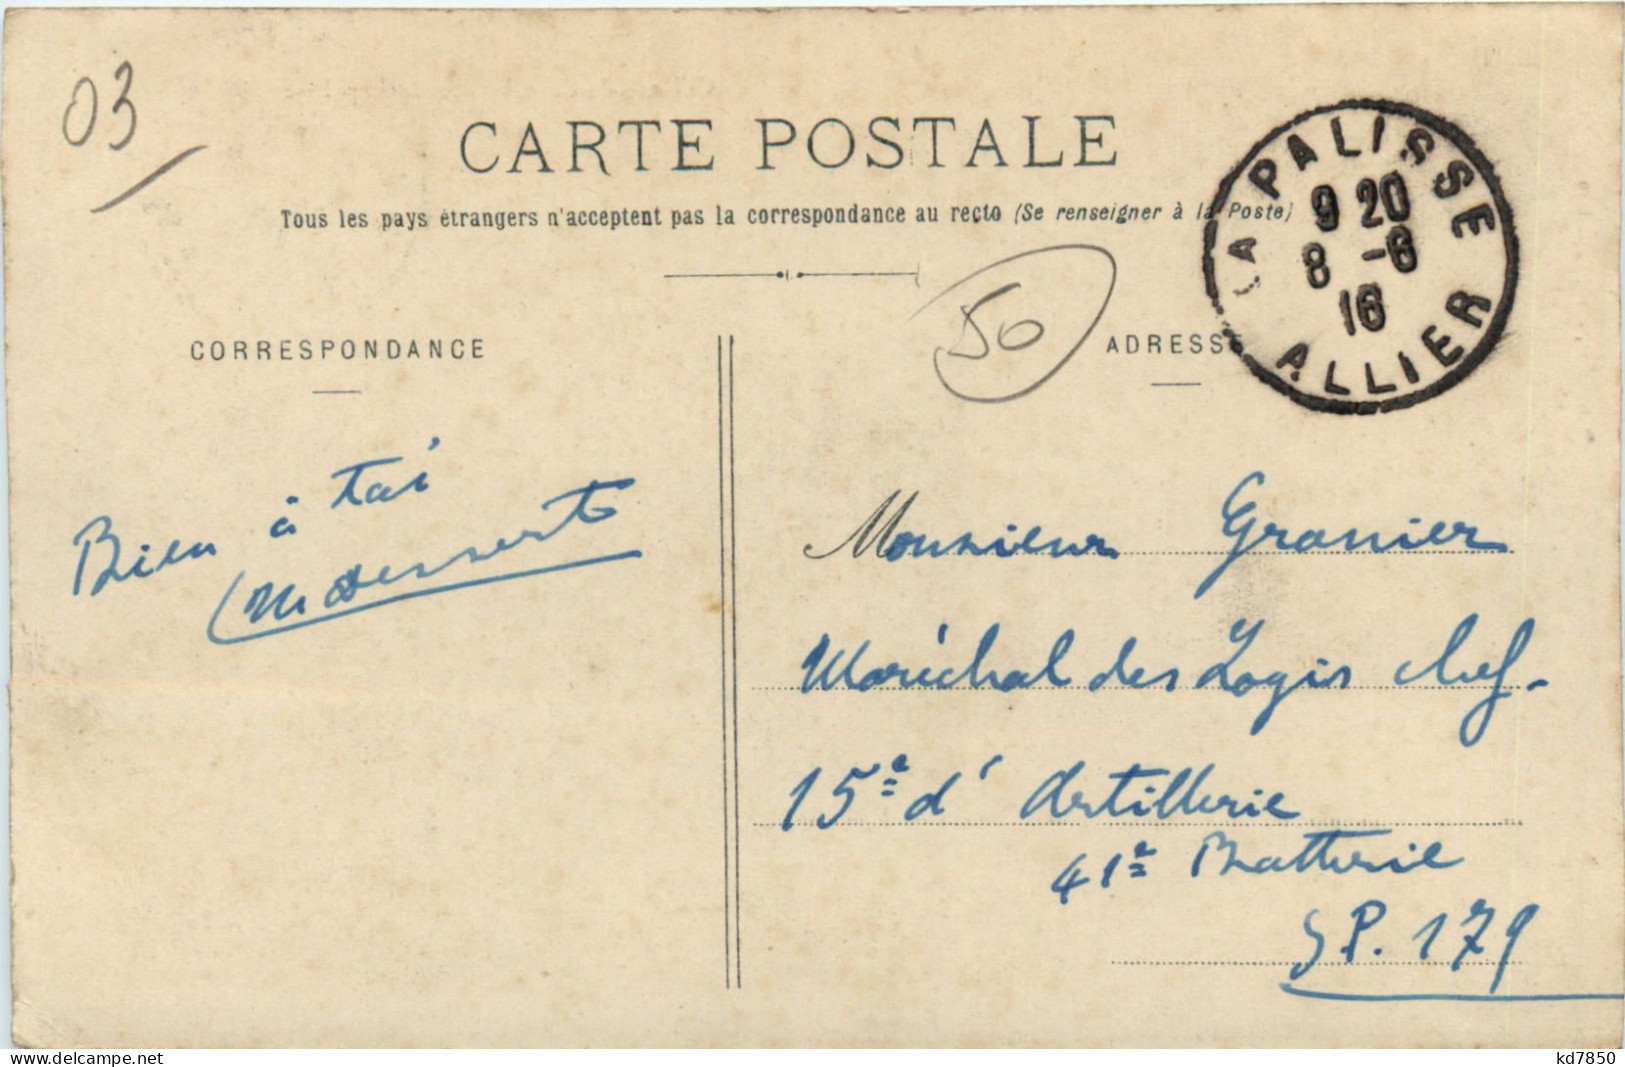 03
CARTE POSTALE
Tous les pays étrangers n'acceptent pas la correspondance au recto (Se renseigner à la Poste)
LA PALISSE
9 20
8 -6
16
ALLIER
50
CORRESPONDANCE
ADRESSE
Bien à toi
Monsieur Granier
Maréchal des Logis chef.
15e d'Artillerie
41e Batterie
S P. 179
www.delcampe.net
kd7850